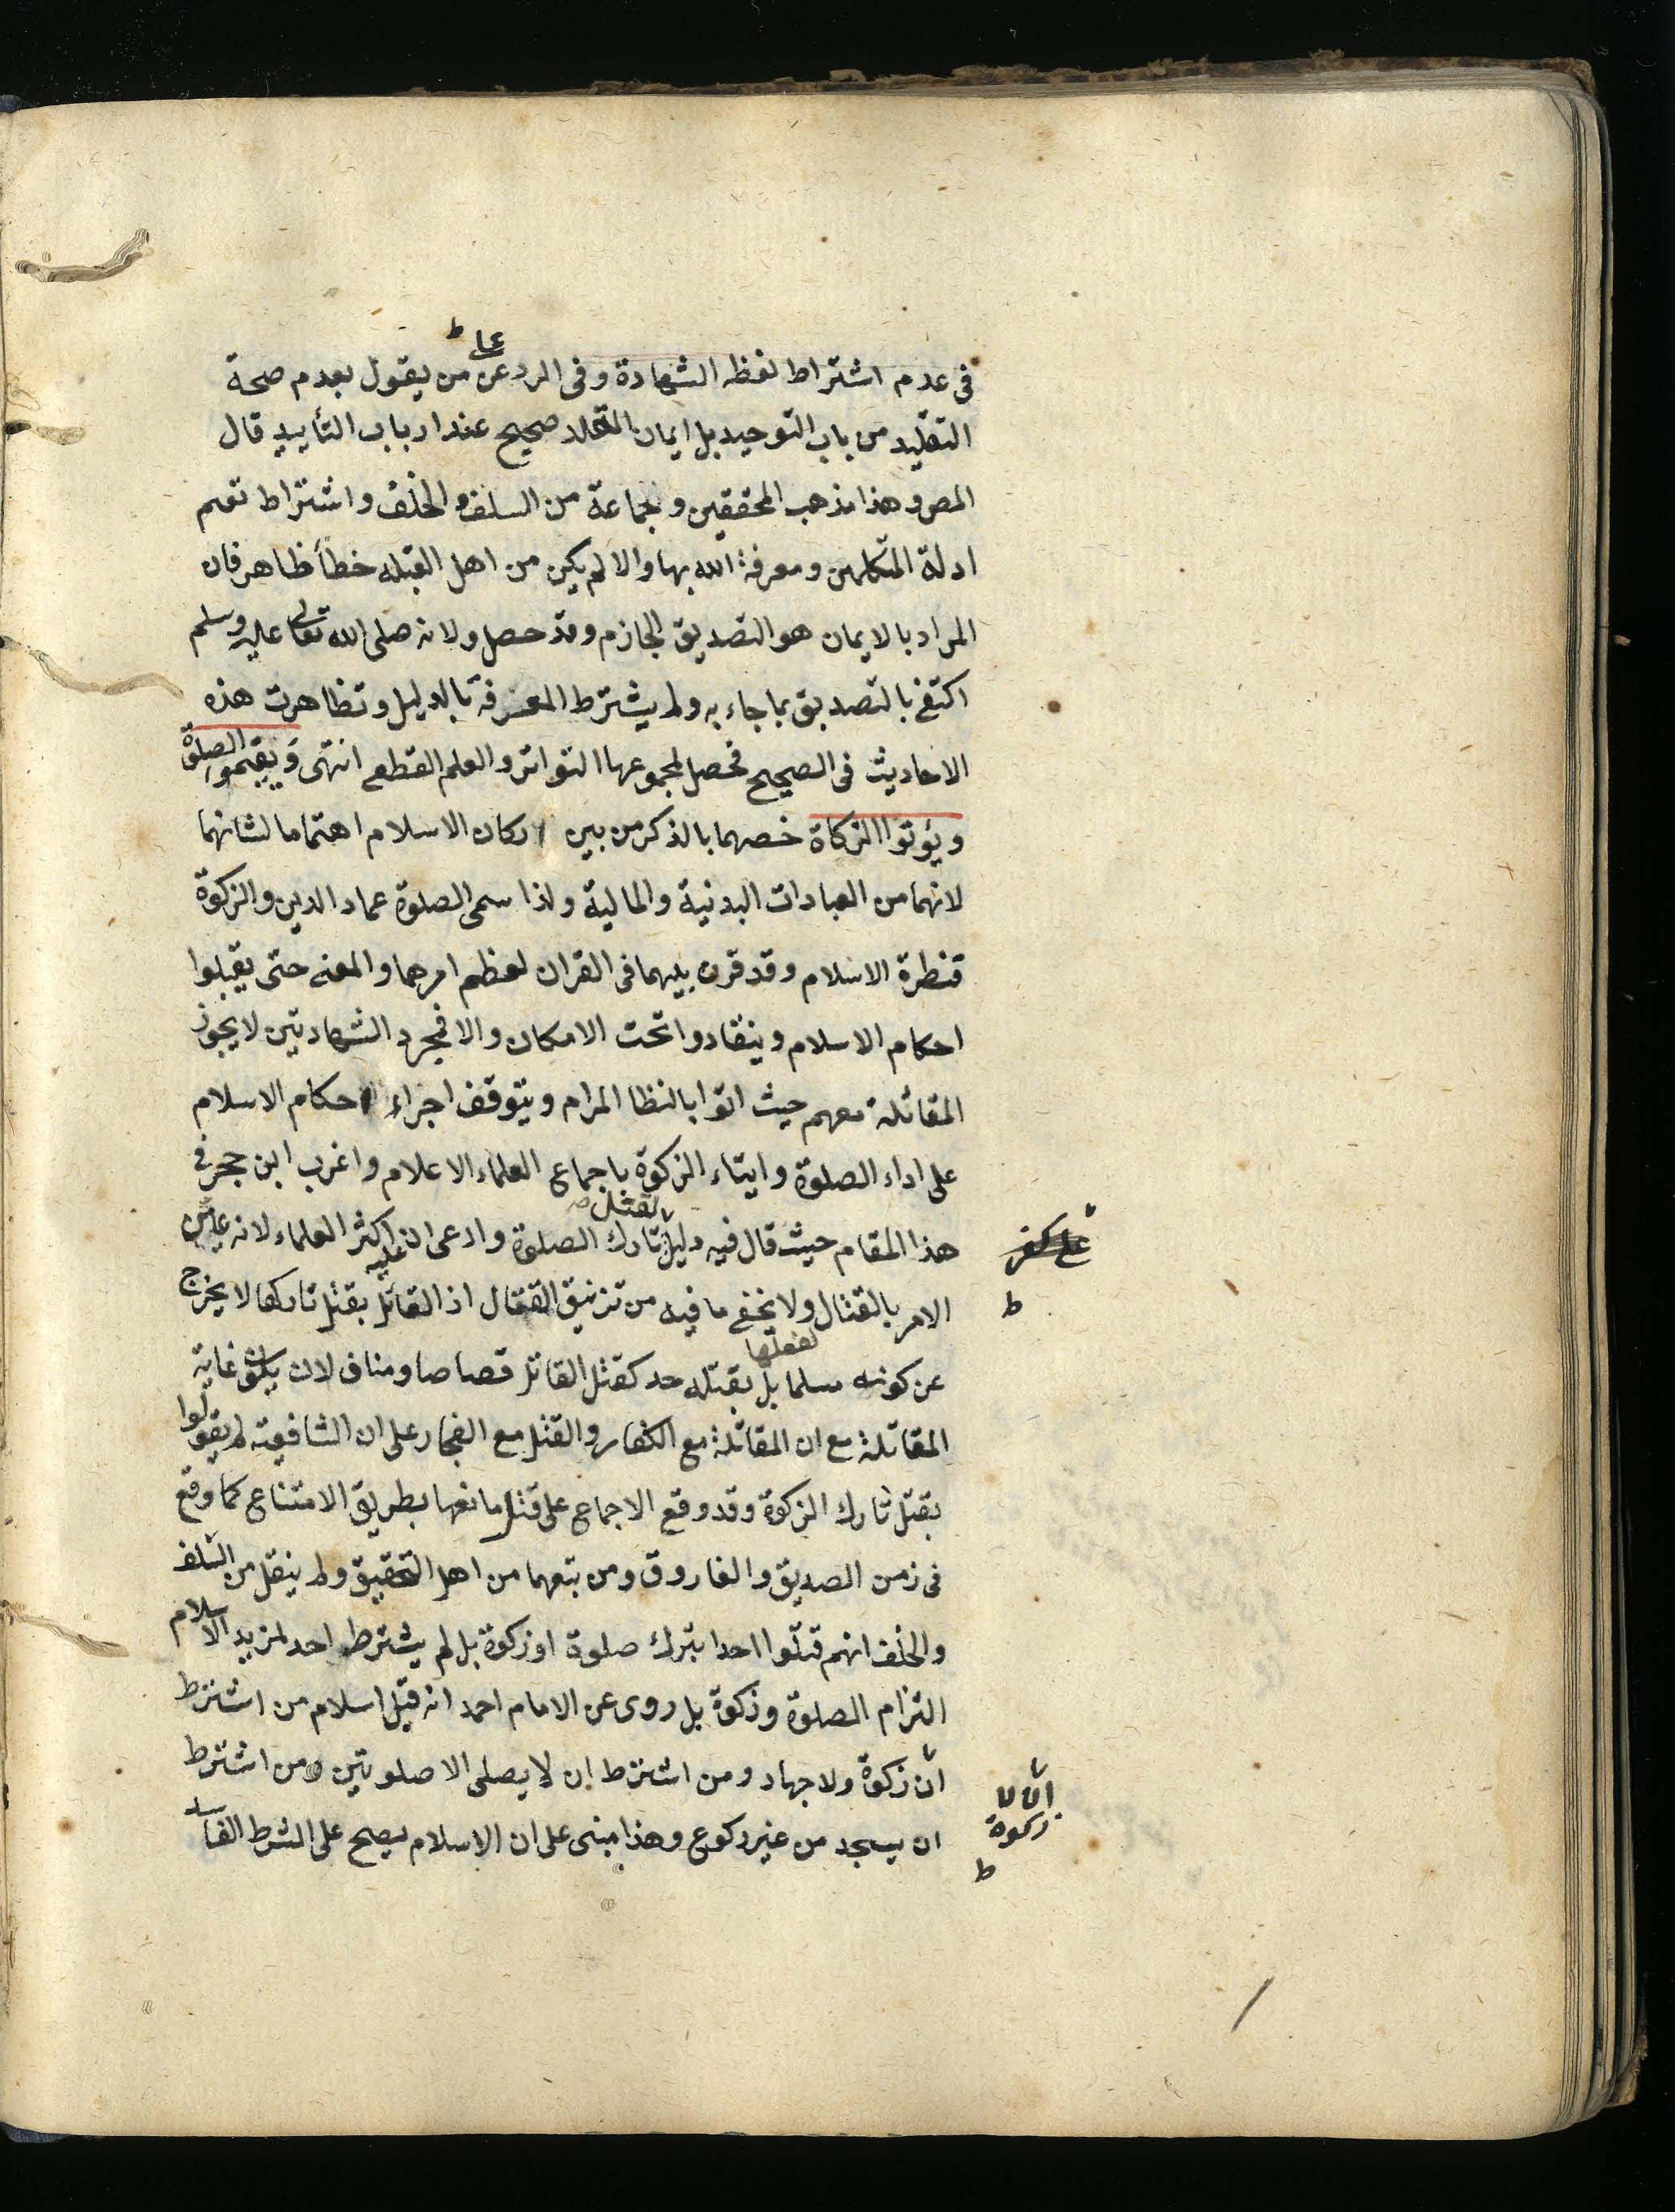 على ط
فى عدم اشتراط لفظه الشهادة وفى الرد عن من يقول بعدم صحة
التقليد من باب التوحيد بل ايمان المقلد صحيح عند ارباب التأييد قال
المص وهذا مذهب المحققين وجماعة من السلف والخلف واشتراط تعلم
ادلة المتكلمين ومعرفة الله بها والا لم يكن من اهل القبله خطأ ظاهر فان
المراد بالايمان هو التصديق الجازم وقد حصل ولانه صلى الله تعالى عليه وسلم
اكتفى بالتصديق بما جاء به ولم يشترط المعرفة بالدليل وتظاهرت هذه
الاحاديث فى الصحيح فحصل لمجموعها التواتر والعلم القطعى انتهى ويقيموا الصلوة
ويؤتوا الزكاة خصهما بالذكر من بين اركان الاسلام اهتماما لشانهما
لانهما من العبادات البدنية والمالية ولذا سمى الصلوة عماد الدين والزكوة
قنطرة الاسلام وقد قرن بينهما فى القران لعظم امرهما والمعنى حتى يقبلوا
احكام الاسلام وينقادوا تحت الامكان والا فمجرد الشهادتين لا يجوز
المقاتلة معهم حيث اتوا بالنظا المرام ويتوقف اجراء احكام الاسلام
على اداء الصلوة وايتاء الزكوة باجماع العلماء الاعلام واغرب ابن حجر فى
لقتل صح
هذا المقام حيث قال فيه دليل تارك الصلوة وادعى ان عليه اكثر العلماء لانه عين
على كفر
الامر بالقتال ولا يخفى ما فيه من تزنيق القفال اذ القائل بقتل تاركها لا يخرج
ط
لفعلها
عن كونه مسلما بل بقتله حد كقتل القاتل قصاصا ومناف لان يكون غاية
المقاتلة مع ان المقاتلة مع الكفار والقتل مع الفجار على ان الشافعية لم يقولوا
بقتل تارك الزكوة وقد وقع الاجماع على قتل مانعها بطريق الامتناع كما وقع
فى زمن الصديق والفاروق ومن تبعهما من اهل التحقيق ولم ينقل من السلف
والخلف انهم قتلوا احدا بترك صلوة او زكوة بل لم يشترط احد لمزيد الاسلام
التزام الصلوة وزكوة بل روى عن الامام احمد انه قبل اسلام من اشترط
ان زكوة ولا جهاد ومن اشترط ان لا يصلى الا صلوتين ومن اشترط
ان لا زكوة
ان يسجد من غير ركوع وهذا مبنى على ان الاسلام يصح على الشرط الفاسد
ط